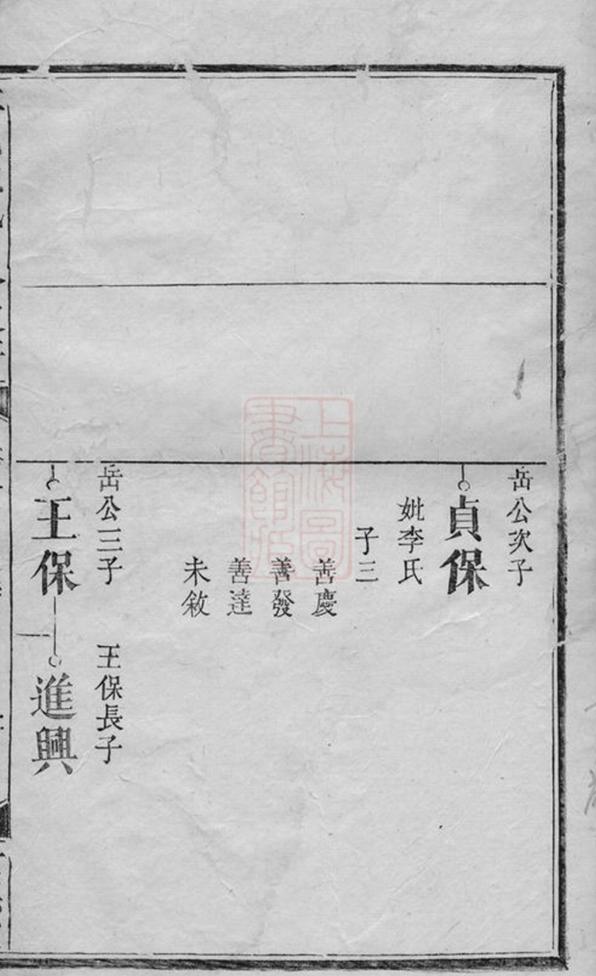 岳公次子
貞保
妣李氏
子三
善慶
善發
善達
未敘
岳公三子
王保長子
王保
進興
上海圖書館藏